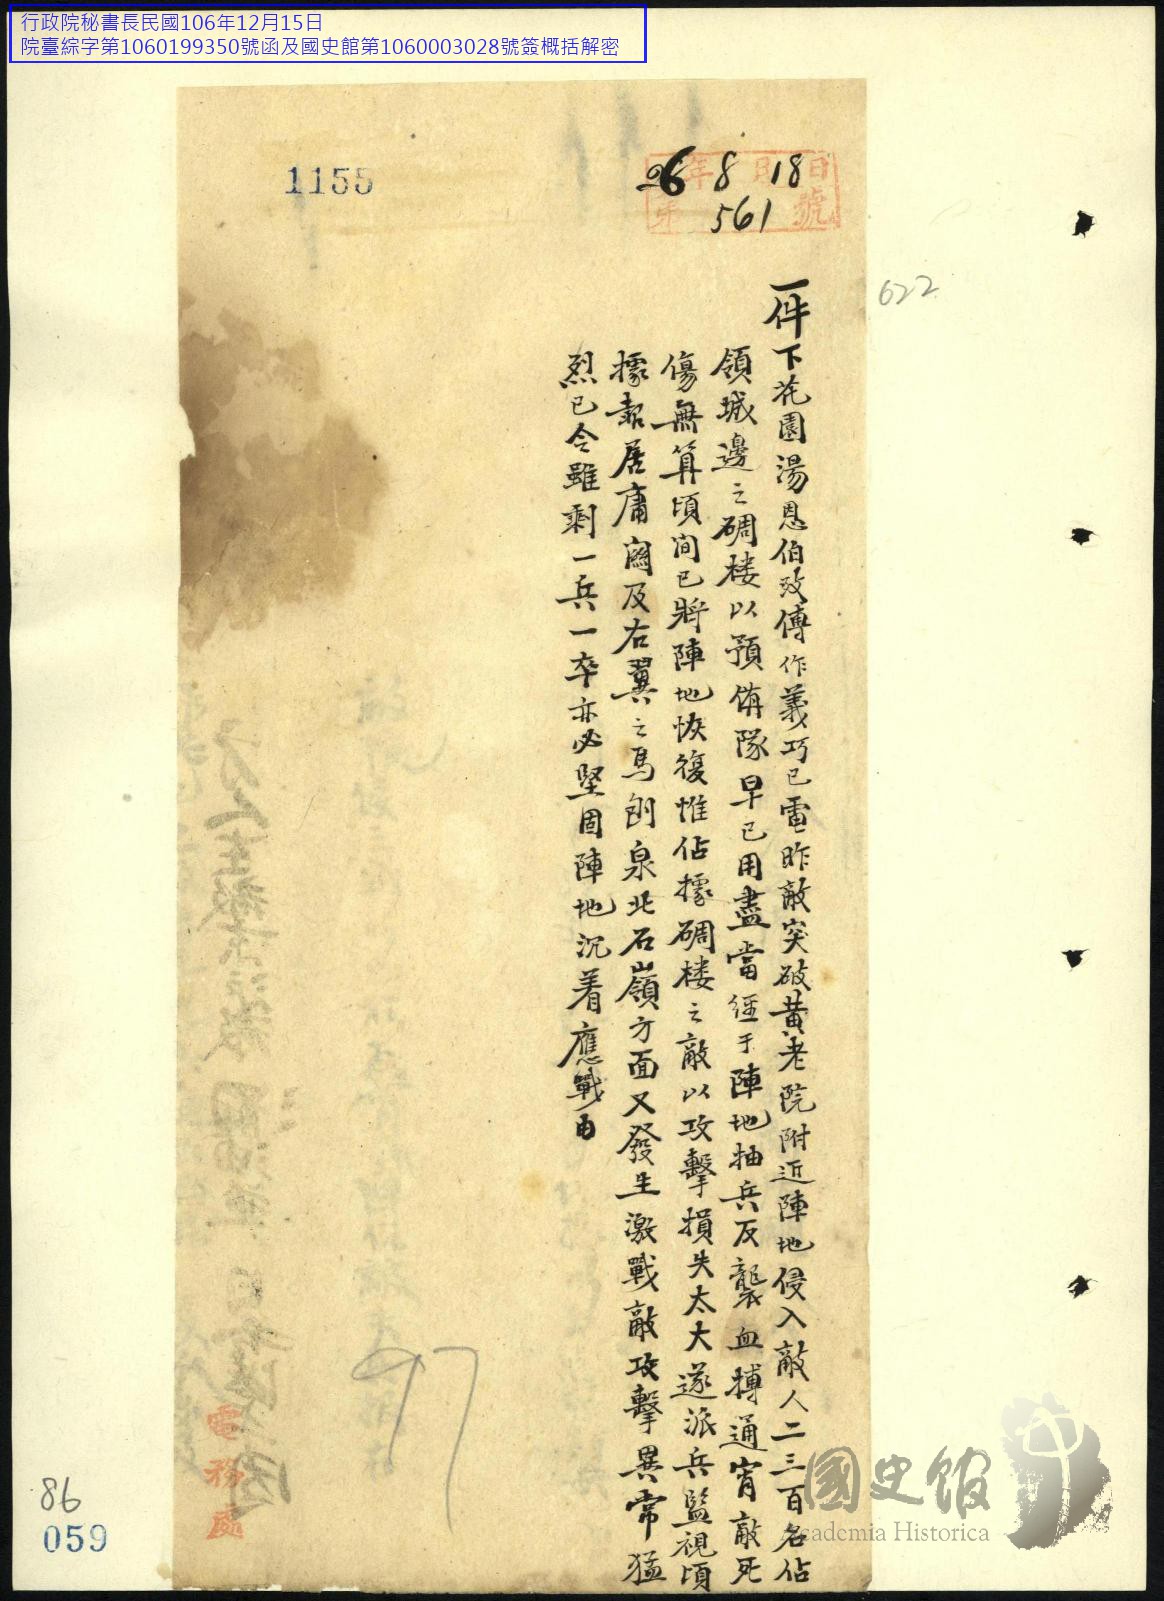 行政院秘書長民國106年12月15日
院臺綜字第1060199350號函及國史館第1060003028號簽概括解密
1155
26年8月18日
第561號
622
一件下花園湯恩伯致傅作義巧已電昨敵突破黃老院附近陣地侵入敵人二三百名佔
領城邊之碉楼以預備隊早已用盡當經于陣地抽兵反襲血搏通宵敵死
傷無算頃间已將陣地恢復惟佔據碉楼之敵以攻擊損失太大遂派兵監視頃
據報居庸関及右翼之馬刨泉北石嶺方面又發生激戰敵攻擊異常猛
烈已令雖剩一兵一卒亦必堅固陣地沉着應戰由
97
電務處
86
059
國史館
Academia Historica